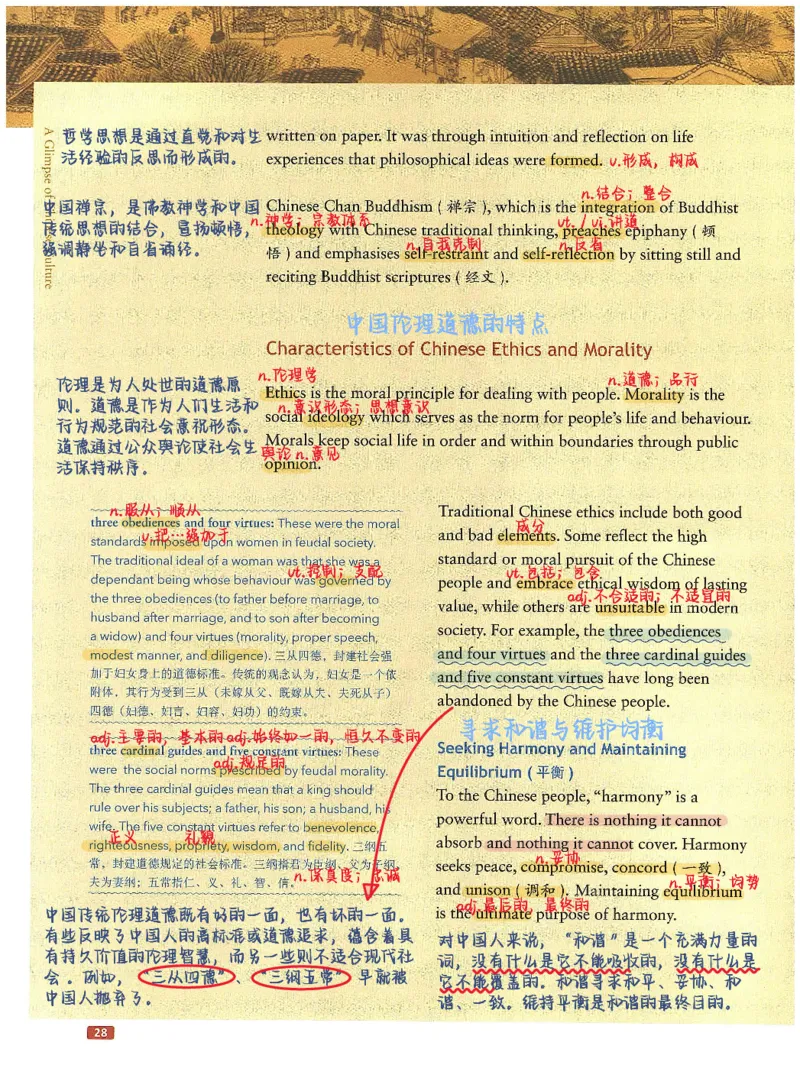 A Glimpse of
ulture
哲学思想是通过直觉和对生
活经验的反思而形成的。
written on paper. It was through intuition and reflection on life
experiences that philosophical ideas were formed. v.形成，构成
n.结合；整合
中国禅宗，是佛教神学和中国
传统思想的结合，宣扬顿悟，
强调静坐和自省诵经。
Chinese Chan Buddhism ( 禅宗 ), which is the integration of Buddhist
n.神学；宗教体系
vt. / vi.讲道
theology with Chinese traditional thinking, preaches epiphany ( 顿
n.自我克制
n.反省
悟 ) and emphasises self-restraint and self-reflection by sitting still and
reciting Buddhist scriptures ( 经文 ).
中国伦理道德的特点
Characteristics of Chinese Ethics and Morality
伦理是为人处世的道德原
则。道德是作为人们生活和
行为规范的社会意识形态。
道德通过公众舆论使社会生
活保持秩序。
n.伦理学
n.道德；品行
Ethics is the moral principle for dealing with people. Morality is the
n.意识形态；思想意识
social ideology which serves as the norm for people's life and behaviour.
Morals keep social life in order and within boundaries through public
舆论 n.意见
opinion.
n.服从；顺从
three obediences and four virtues: These were the moral
v.把…强加于
standards imposed upon women in feudal society.
The traditional ideal of a woman was that she was a
vt.控制；支配
dependant being whose behaviour was governed by
the three obediences (to father before marriage, to
husband after marriage, and to son after becoming
a widow) and four virtues (morality, proper speech,
modest manner, and diligence). 三从四德，封建社会强
加于妇女身上的道德标准。传统的观念认为，妇女是一个依
附体，其行为受到三从（未嫁从父、既嫁从夫、夫死从子）
四德（妇德、妇言、妇容、妇功）的约束。
adj.主要的，基本的 adj.始终如一的，恒久不变的
three cardinal guides and five constant virtues: These
adj.规定的
were the social norms prescribed by feudal morality.
The three cardinal guides mean that a king should
rule over his subjects; a father, his son; a husband, his
wife. The five constant virtues refer to benevolence,
正义
礼貌
righteousness, propriety, wisdom, and fidelity. 三纲五
常，封建道德规定的社会标准。三纲指君为臣纲、父为子纲、
夫为妻纲；五常指仁、义、礼、智、信。
n.保真度；忠诚
Traditional Chinese ethics include both good
成分
and bad elements. Some reflect the high
standard or moral pursuit of the Chinese
vt.包括；包含
people and embrace ethical wisdom of lasting
adj.不合适的；不适宜的
value, while others are unsuitable in modern
society. For example, the three obediences
and four virtues and the three cardinal guides
and five constant virtues have long been
abandoned by the Chinese people.
寻求和谐与维护均衡
Seeking Harmony and Maintaining
Equilibrium ( 平衡 )
To the Chinese people, "harmony" is a
powerful word. There is nothing it cannot
absorb and nothing it cannot cover. Harmony
n.妥协
seeks peace, compromise, concord ( 一致 ),
n.平衡；均势
and unison ( 调和 ). Maintaining equilibrium
adj.最后的，最终的
is the ultimate purpose of harmony.
中国传统伦理道德既有好的一面，也有坏的一面。
有些反映了中国人的高标准或道德追求，蕴含着具
有持久价值的伦理智慧，而另一些则不适合现代社
会。例如，“三从四德”、“三纲五常”早就被
中国人抛弃了。
对中国人来说，“和谐”是一个充满力量的
词，没有什么是它不能吸收的，没有什么是
它不能覆盖的。和谐寻求和平、妥协、和
谐、一致。维持平衡是和谐的最终目的。
28